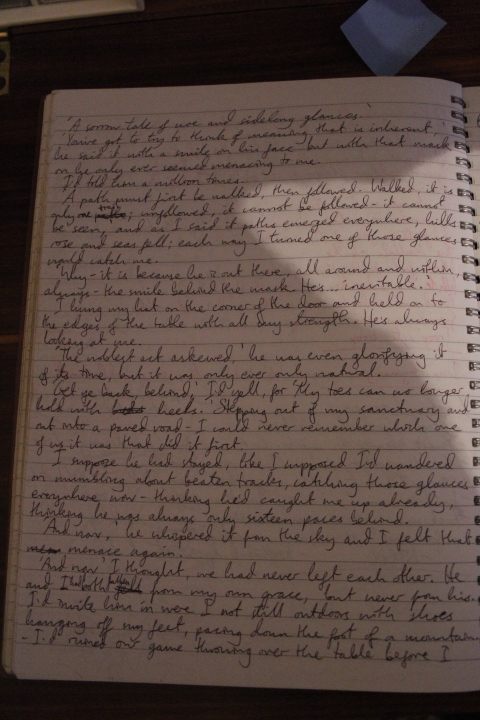 'A sorrow tale of woe and sidelong glances.'
'You've got to try to think of meaning that is inherent,'
he said it with a smile on his face but with that mask
on he only ever seemed menacing to me.
I'd told him a million times.
A path must first be walked, then followed. Walked, it is
only one; unfollowed, it cannot be followed - it cannot
be seen, and as I said it paths emerged everywhere, hills
rose and seas fell; each way I turned one of those glances
would catch me.
Why - it is because he's out there, all around and within,
always - the smile behind the mask. He's... inevitable.
I hung my hat on the corner of the door and held on to
the edges of the table with all my strength. He's always
looking at me.
'The noblest act askewed,' he was even glorifying it
of its time, but it was only ever only natural.
'Get ye back, behind,' I'd yell, for 'My toes can no longer
hold with heels.' Stepping out of my sanctuary and
out into a paved road - I could never remember which one
of us it was that did it first.
I suppose he had stayed, like I supposed I'd wandered
on mumbling about beaten tracks, catching those glances
everywhere, now - thinking he'd caught me up already,
thinking he was always only sixteen paces behind.
'And now,' he whispered it from the sky and I felt that
menace again.
'And now' I thought, we had never left each other. He
and I had both fallen from my own grace, but never from his.
I'd invite him in were I not still outdoors with shoes
hanging off my feet, pacing down the foot of a mountain
- I'd ruined our game throwing over the table before I